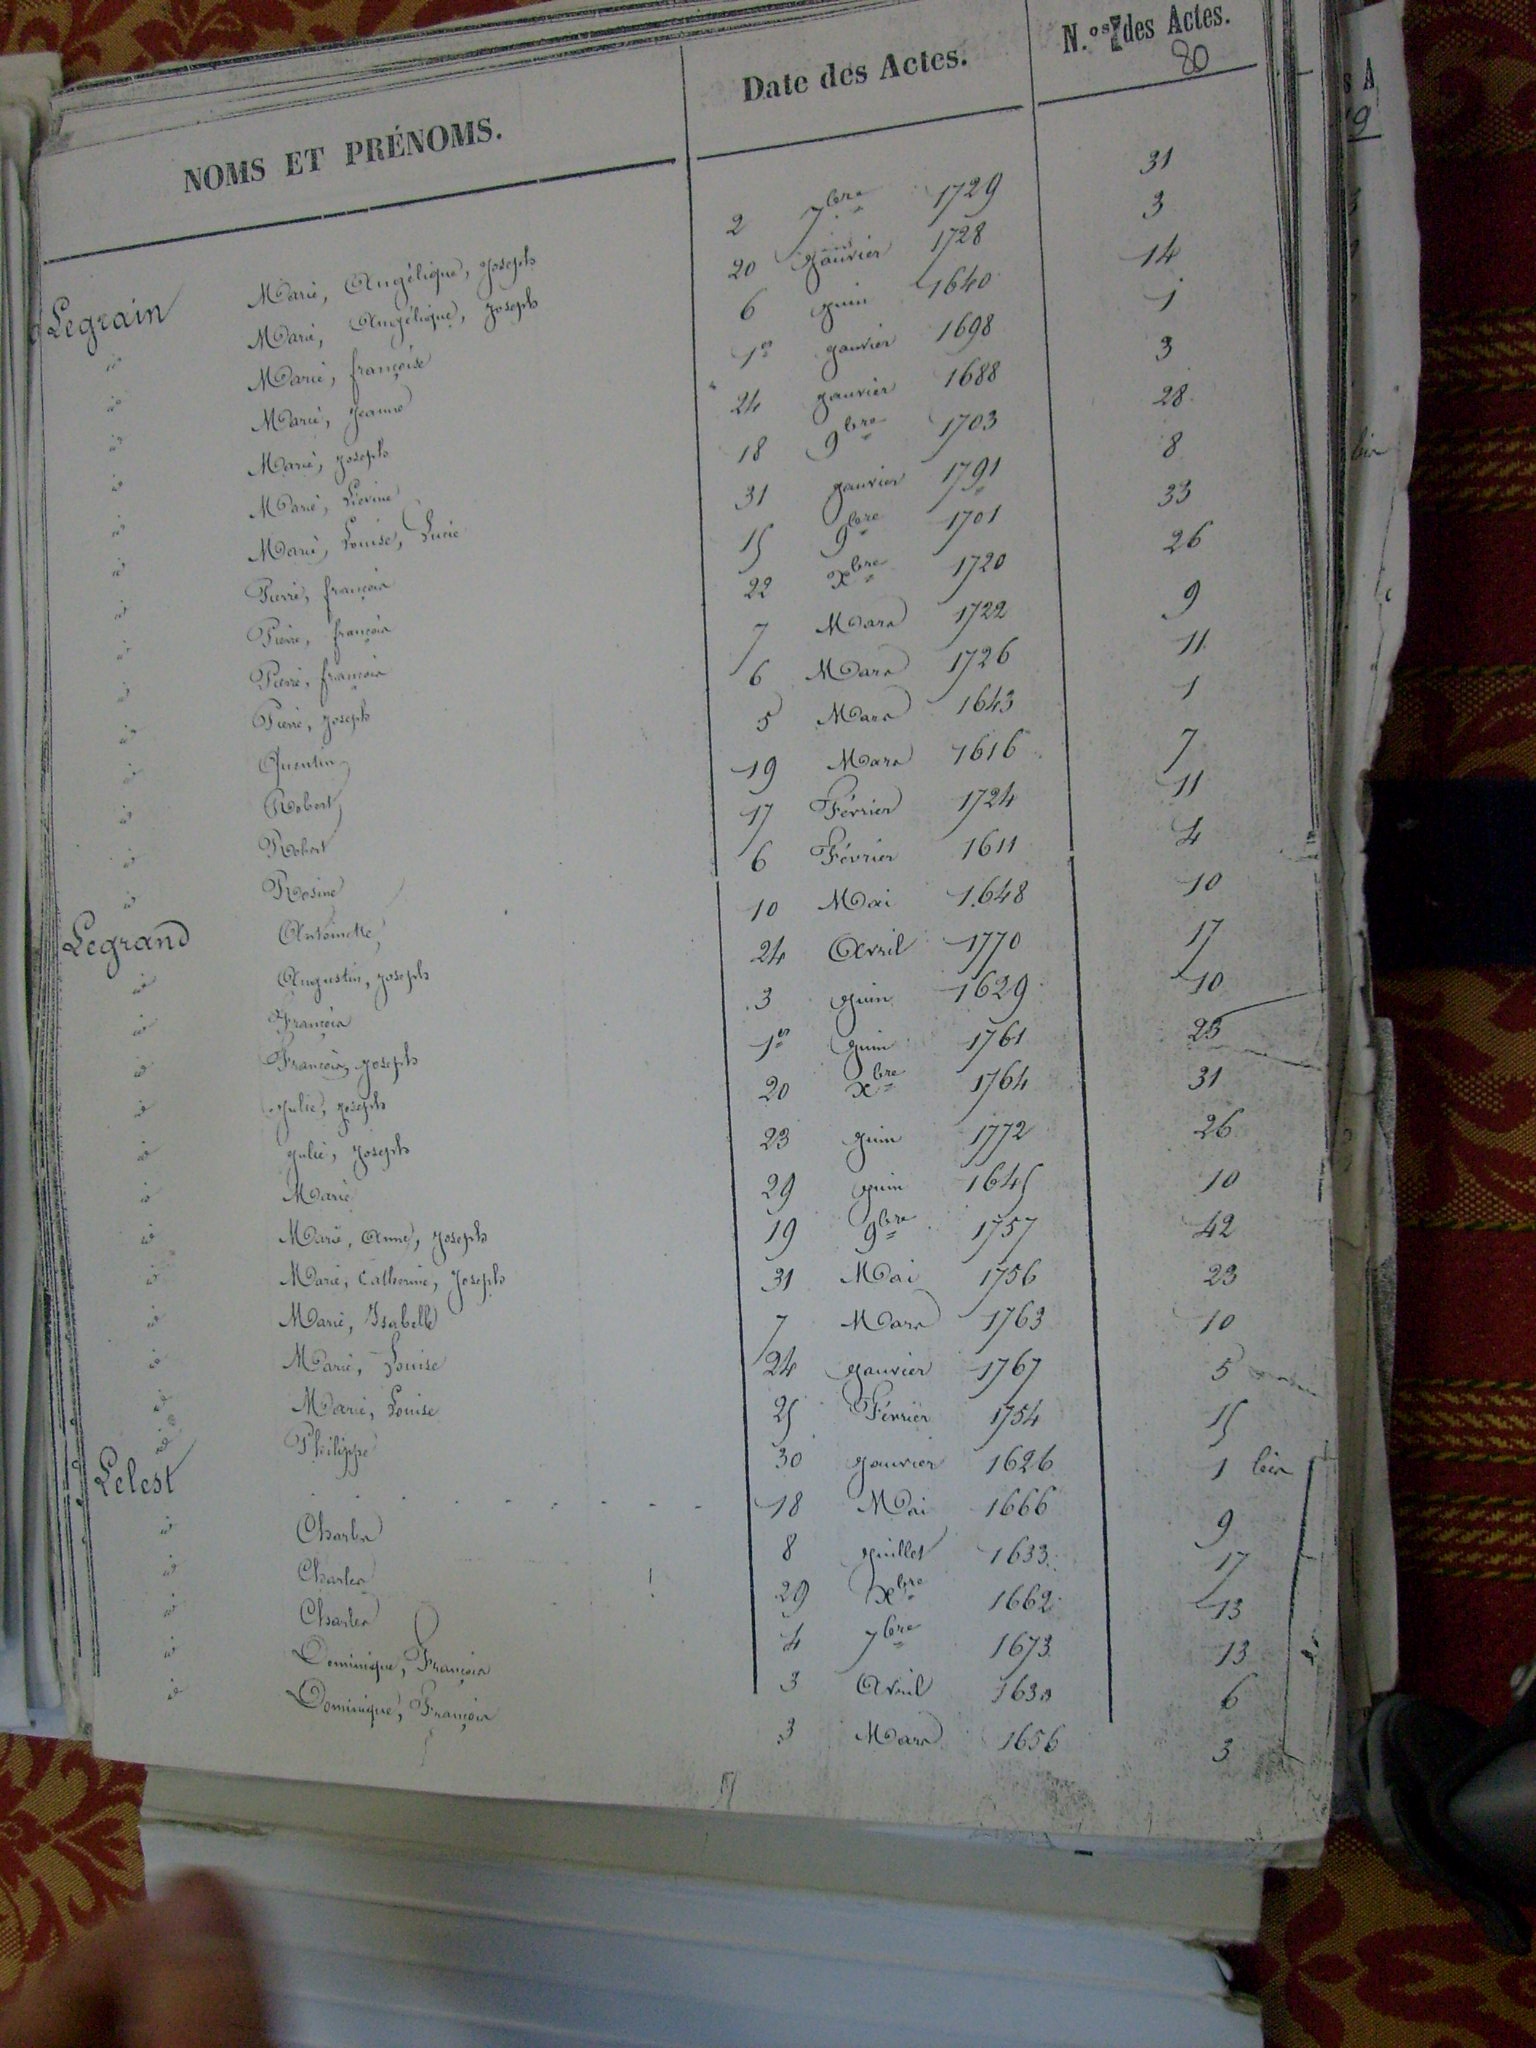 NOMS ET PRÉNOMS. Date des Actes. N.os des Actes.
80
Legrain Marie, Angélique, Joseph 2 7bre 1729 31
id Marie, Angélique, Joseph 20 Janvier 1728 3
id Marie, françoise 6 Juin 1640 14
id Marie, Jeanne 1er Janvier 1698 1
id Marie, Joseph 24 Janvier 1688 3
id Marie, Lievine 18 9bre 1703 28
id Marie, Louise, Lucie 31 Janvier 1791 8
id Pierre, françois 15 9bre 1701 33
id Pierre, françois 22 Xbre 1720 26
id Pierre, françois 7 Mars 1722 9
id Pierre, Joseph 6 Mars 1726 11
id Quentin 5 Mars 1643 1
id Robert 19 Mars 1616 7
id Robert 17 Février 1724 11
id Rosine 6 Février 1611 4
Legrand Antoinette 10 Mai 1648 10
id Augustin, Joseph 24 Avril 1770 17
id François 3 Juin 1629 10
id François, Joseph 1er Juin 1761 23
id Julie, Joseph 20 Xbre 1764 31
id Julie, Joseph 23 Juin 1772 26
id Marie 29 Juin 1645 10
id Marie, Anne, Joseph 19 9bre 1757 42
id Marie, Catherine, Joseph 31 Mai 1756 23
id Marie, Isabelle 7 Mars 1763 10
id Marie, Louise 24 Janvier 1767 5
id Marie, Louise 25 Février 1754 15
id Philippe 30 Janvier 1626 1 bis
Lelest - - - - - - - 18 Mai 1666 9
id Charles 8 Juillet 1633 17
id Charles 29 Xbre 1662 13
id Charles 4 7bre 1673 13
id Dominique, François 3 Avril 1630 6
id Dominique, François 3 Mars 1656 3